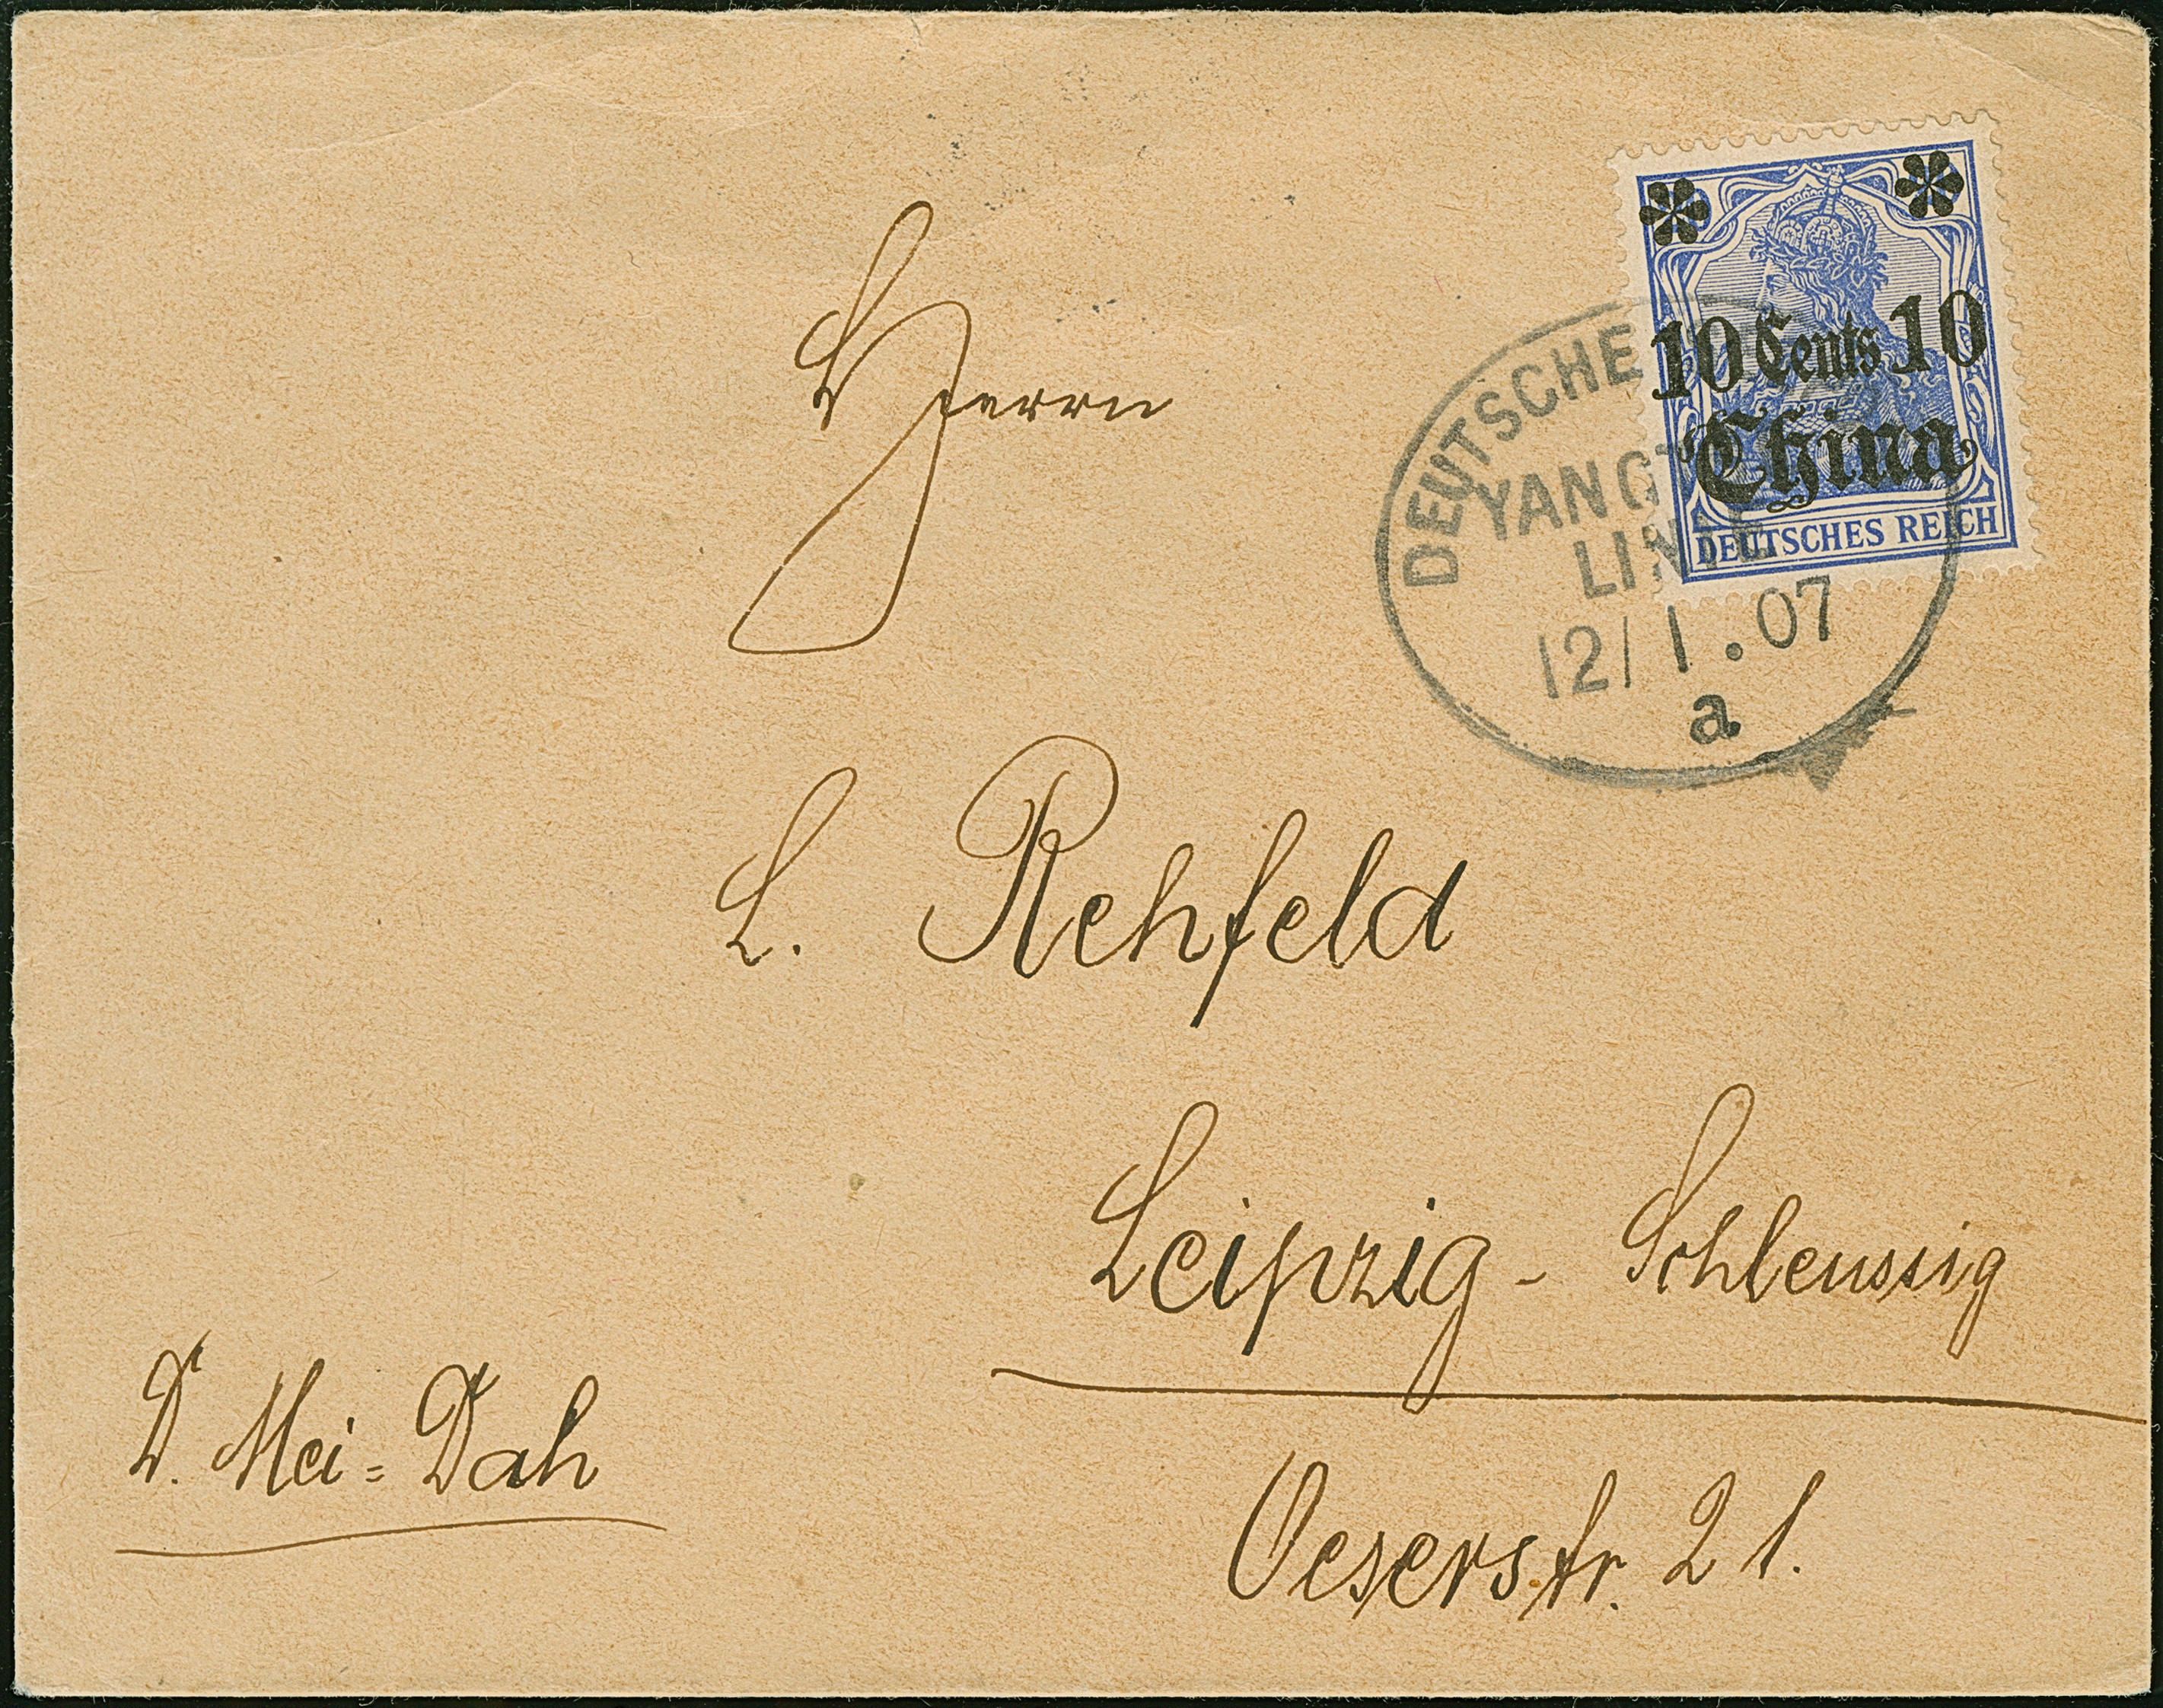 10 Cents 10
China
DEUTSCHES REICH
DEUTSCHE
LINIE
12/1.07
a
Herrn
L. Rehfeld
Leipzig - Schleussig
Oeserstr. 21.
D. Mei=Dah